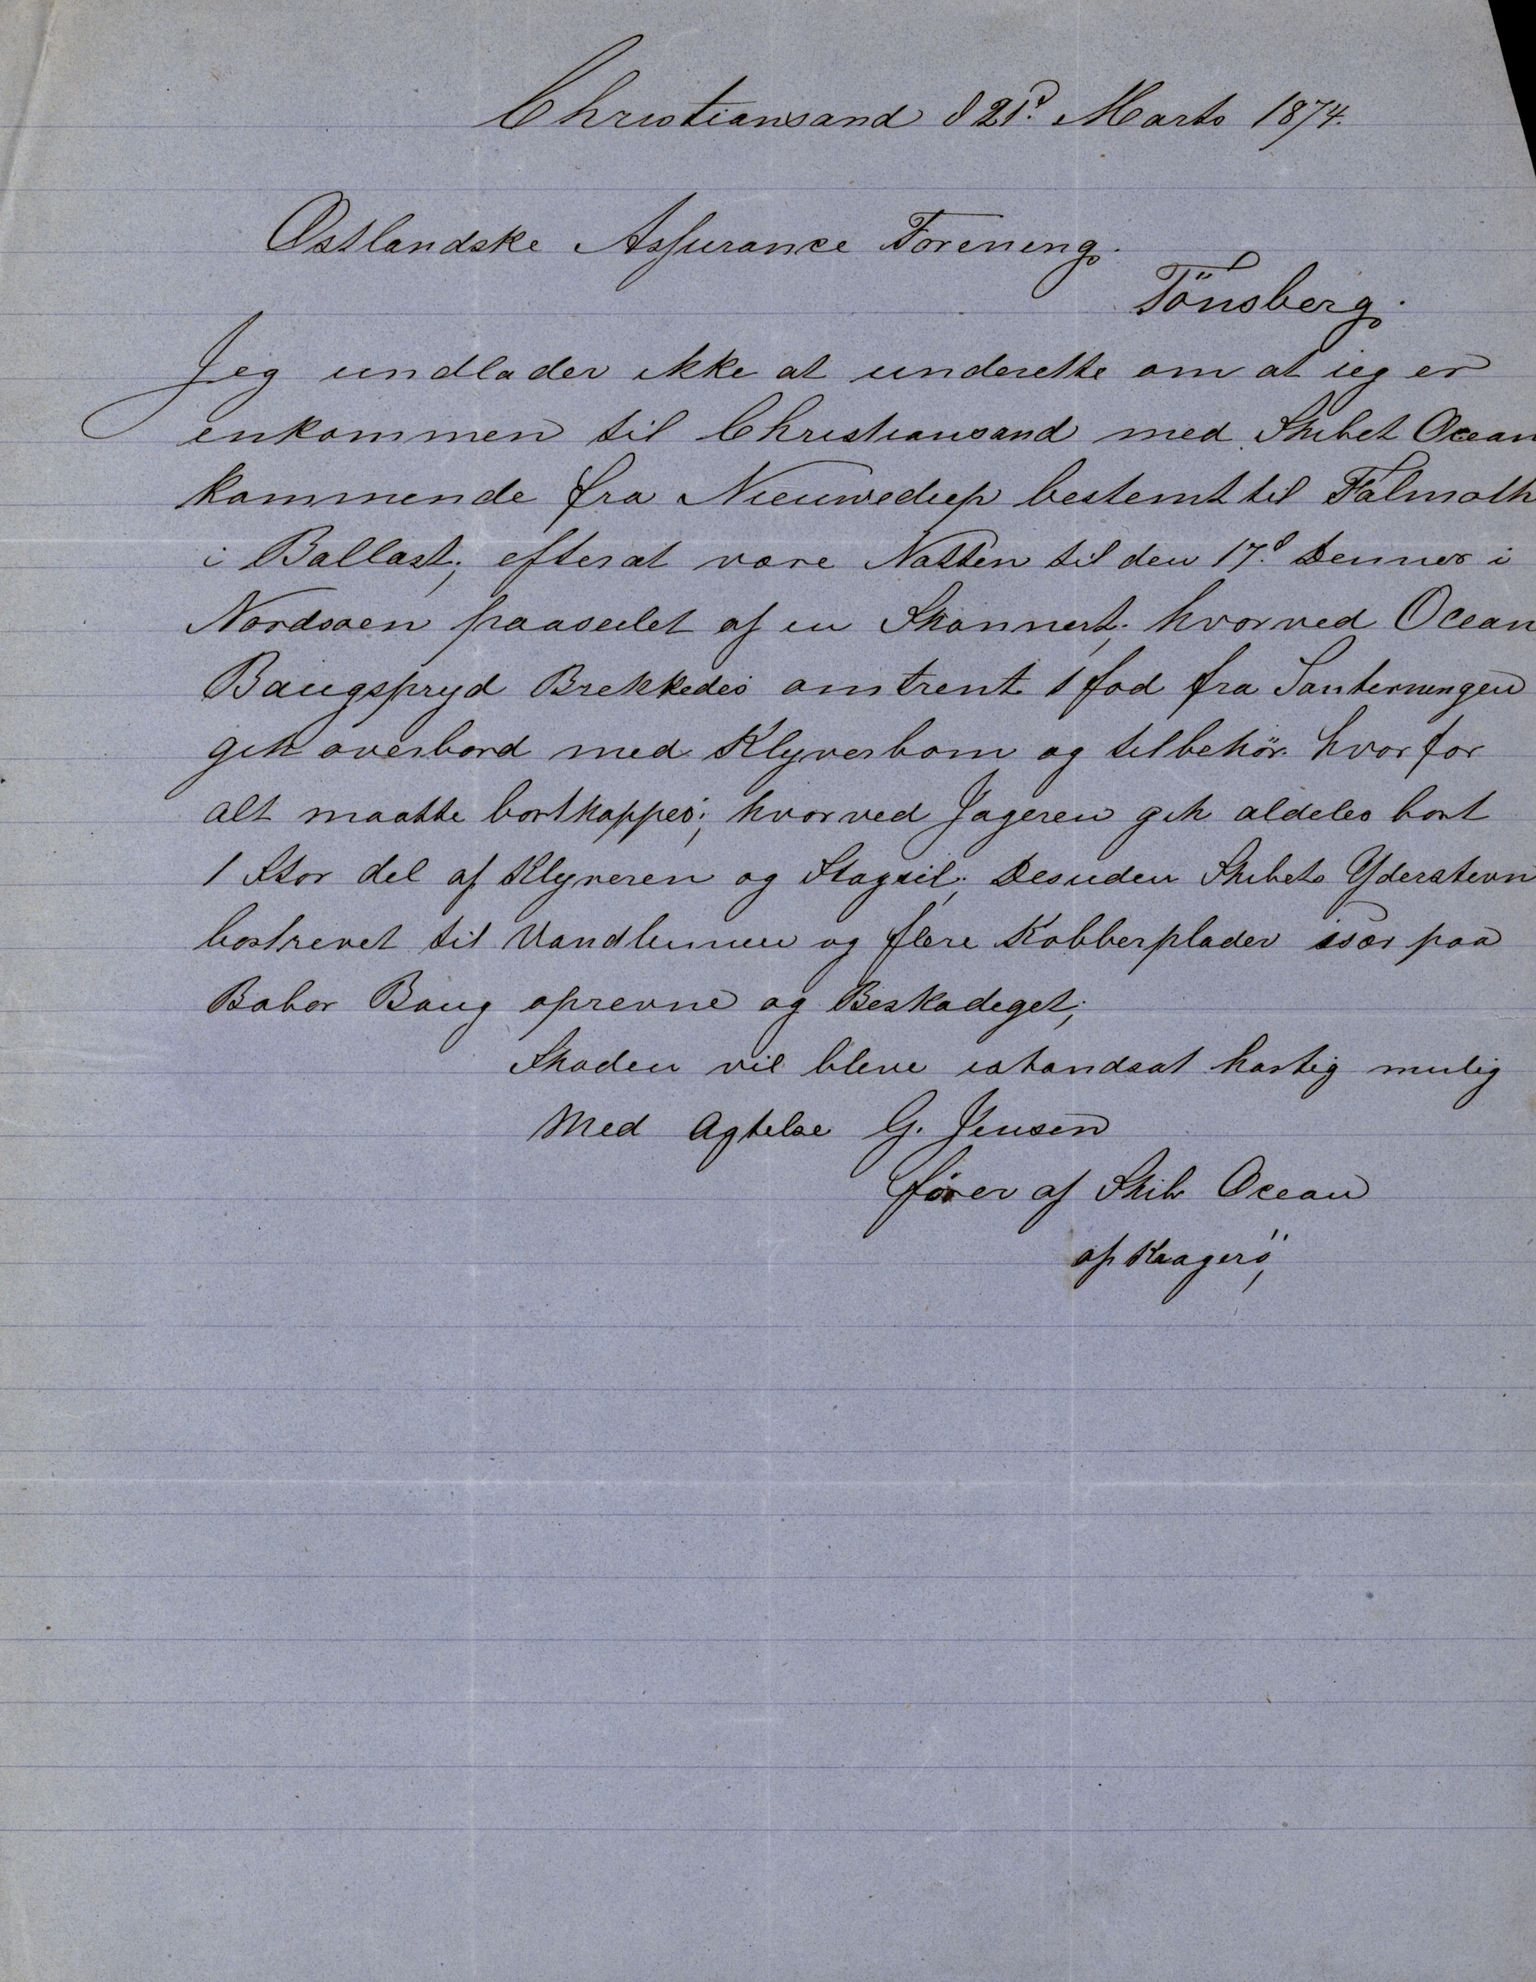 Christiansand d 21d. Marts 1874.
Østlandske Assurance Forening.
Tönsberg.
Jeg undlader ikke at underette om at ieg er
enkommen til Christiansand med Skibet Ocean
kommende fra Nieuwediep bestemt til Falmoth
i Ballast; efter at være Natten til den 17d. Dennes i
Nordsøen paaseilet af en Skonnert; hvorved Ocean
Baugspryd Brekkedes omtrent 1 fod fra Santerningen
gik overbord med Klyverbom og tilbehör. hvor for
alt maatte bortkappes; hvorved Jageren gik aldeles bort
1 Stor del af Klyveren og Stagseil; Desuden Skibets Yderstevn
bortrevet til Vandlinnien og flere Kobberplader især paa
Babor Baug oprevne og Beskadeget;
Skaden vil bleve istandsat hastig mulig
Med Agtelse G. Jensen
fører af Skib Ocean
af Kragerö,